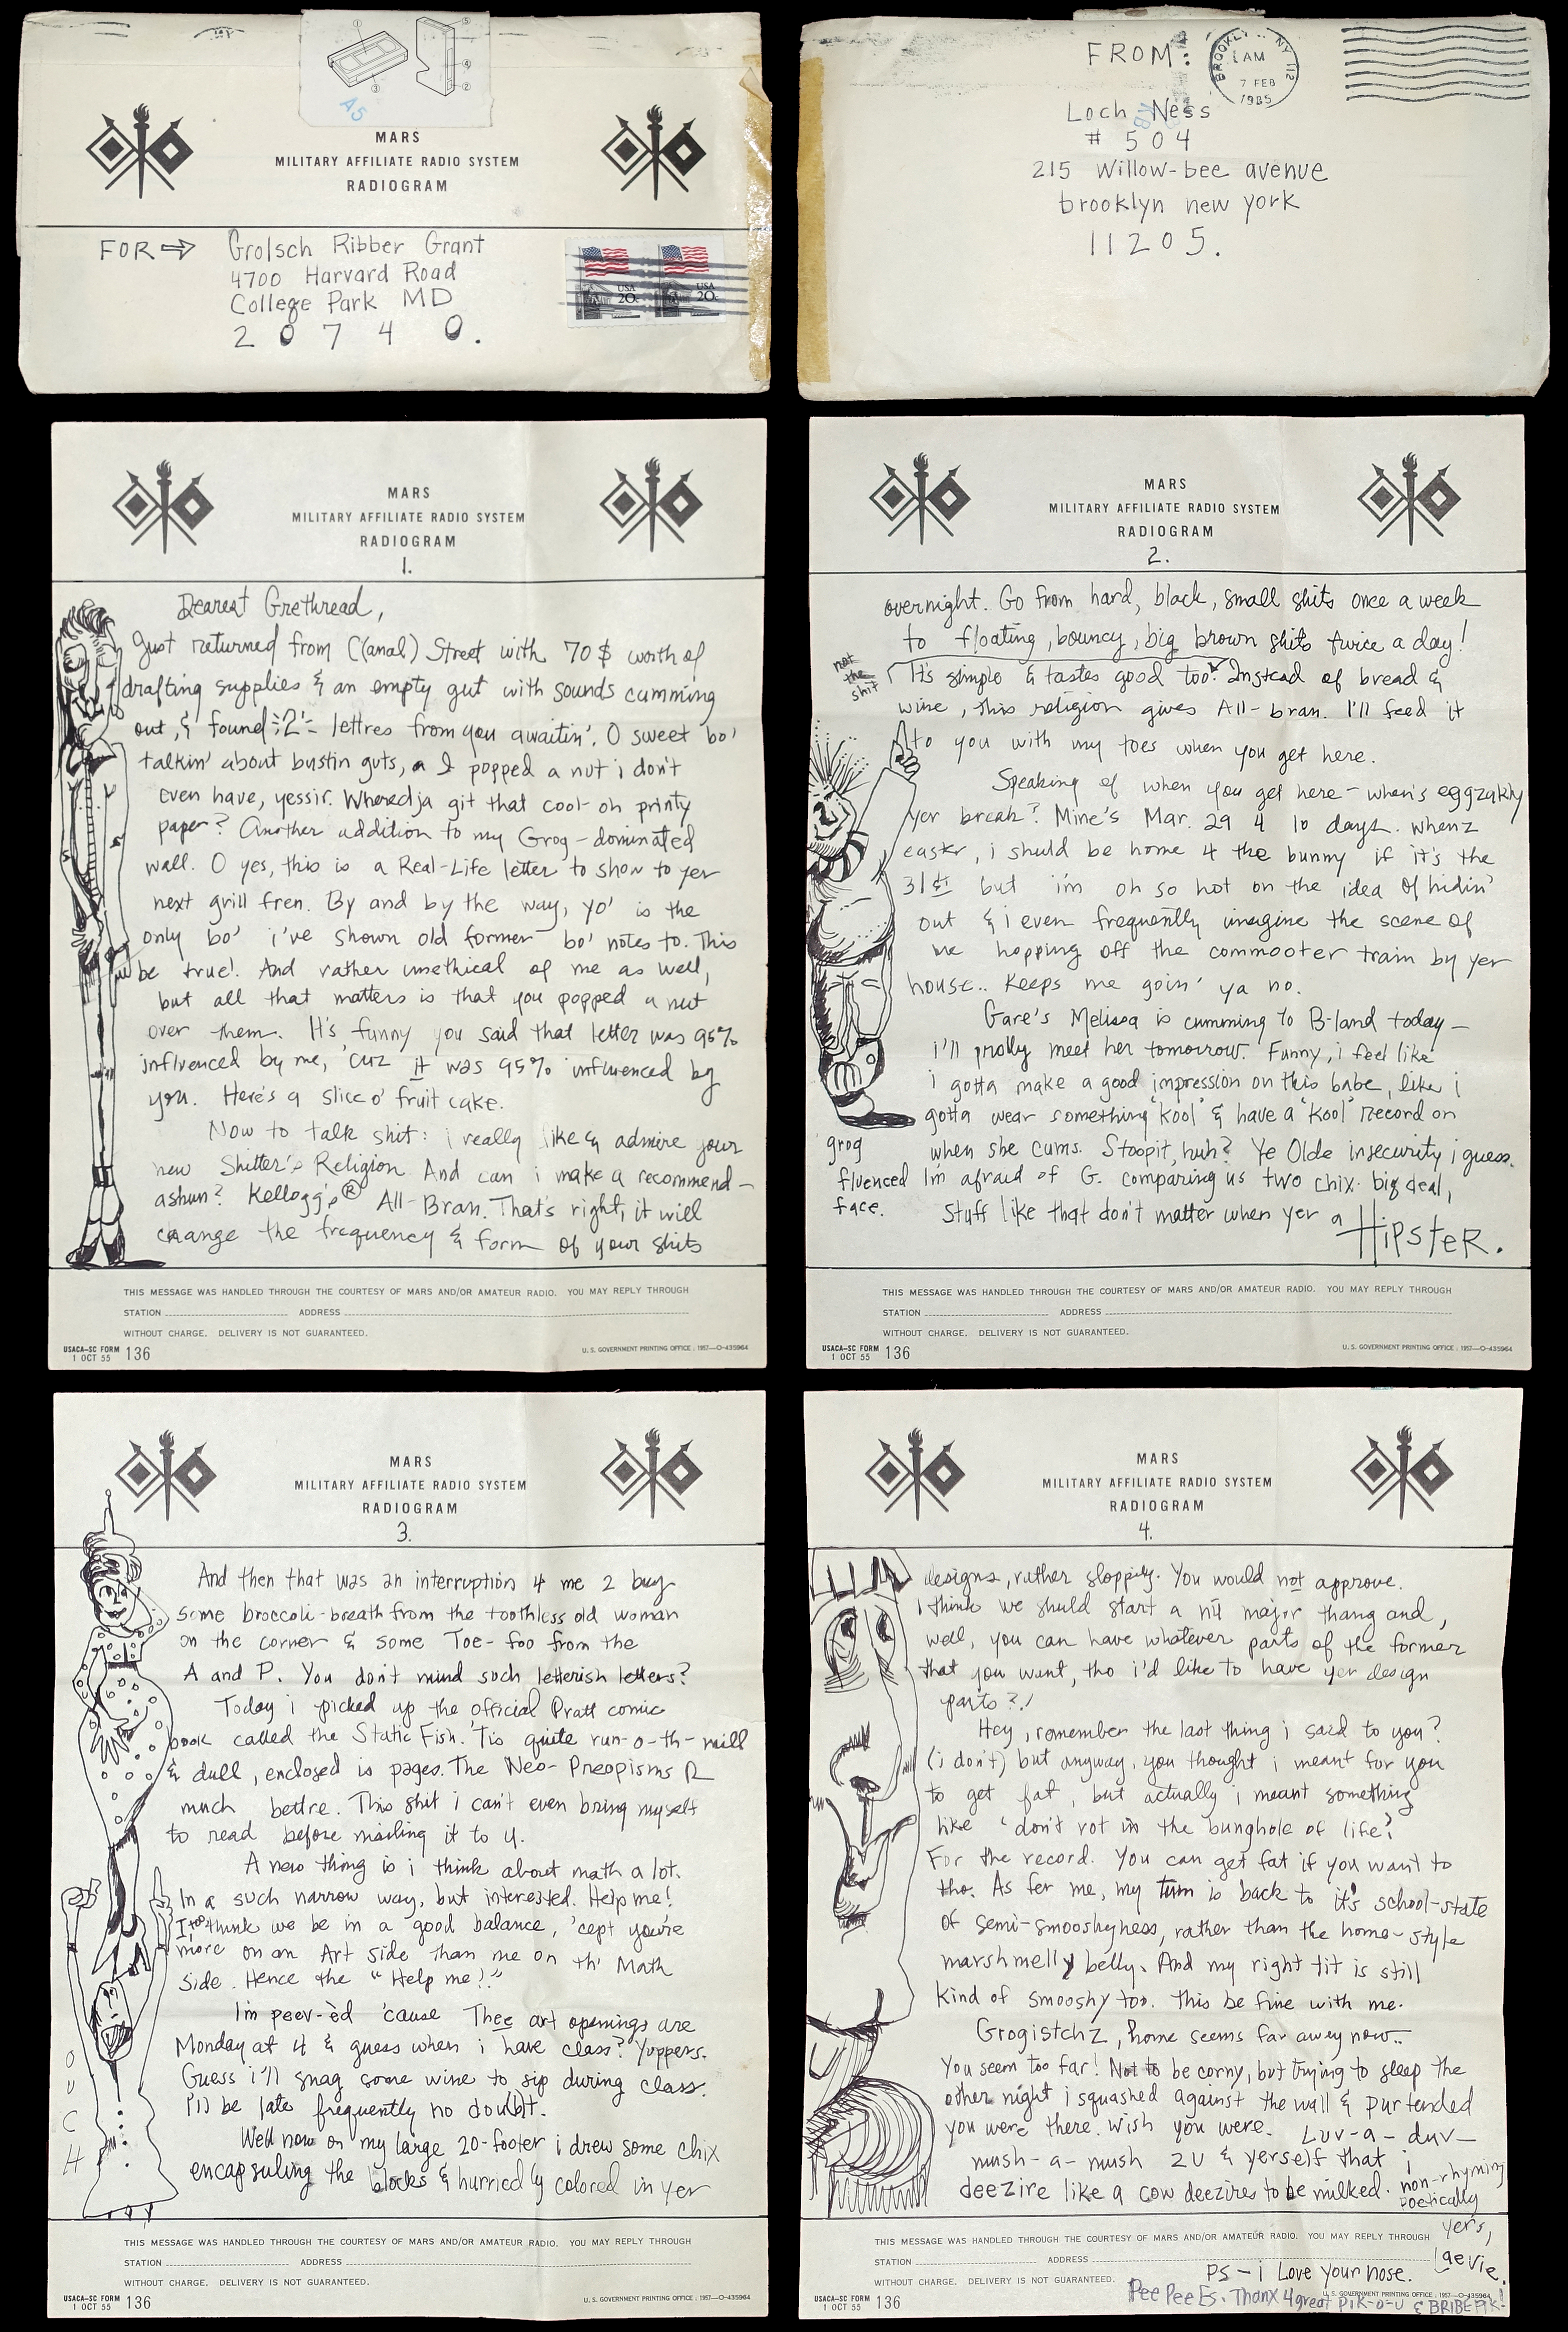 MARS
MILITARY AFFILIATE RADIO SYSTEM
RADIOGRAM
A5
① ② ③ ④ ⑤
FOR ⇒ Grolsch Ribber Grant
4700 Harvard Road
College Park MD
2 0 7 4 0.
USA 20c USA 20c
FROM:
BROOKLYN NY 112
AM
7 FEB
1985
Loch Ness
# 504
215 Willow-bee avenue
brooklyn new york
11205.
MARS
MILITARY AFFILIATE RADIO SYSTEM
RADIOGRAM
1.
Dearest Grethread,
Just returned from C(anal) Street with 70$ worth of
drafting supplies & an empty gut with sounds cumming
out, & found 2 lettres from you awaitin'. O sweet bo'
talkin' about bustin guts, I popped a nut i don't
even have, yessir. Wheredja git that cool-oh printy
paper? Another addition to my Grog-dominated
wall. O yes, this is a Real-Life letter to show to yer
next grill fren. By and by the way, yo' is the
only bo' i've shown old former bo' notes to. This
be true! And rather unethical of me as well,
but all that matters is that you popped a nut
over them. It's funny you said that letter was 95%
influenced by me, 'cuz it was 95% influenced by
you. Here's a slice o' fruit cake.
Now to talk shit: i really like & admire your
new Shitter's Religion. And can i make a recommend-
ashun? Kellogg's® All-Bran. That's right, it will
change the frequency & form of your shits
THIS MESSAGE WAS HANDLED THROUGH THE COURTESY OF MARS AND/OR AMATEUR RADIO. YOU MAY REPLY THROUGH
STATION ADDRESS
WITHOUT CHARGE. DELIVERY IS NOT GUARANTEED.
USACA-SC FORM 136
1 OCT 55
U. S. GOVERNMENT PRINTING OFFICE : 1957—O-435964
MARS
MILITARY AFFILIATE RADIO SYSTEM
RADIOGRAM
2.
overnight. Go from hard, black, small shits once a week
to floating, bouncy, big brown shits twice a day!
not the shit
It's simple & tastes good too. Instead of bread &
wine, this religion gives All-bran. I'll feed it
to you with my toes when you get here.
Speaking of when you get here - when's eggzakly
yer break? Mine's Mar. 29 4 10 days. whenz
easter, i shuld be home 4 the bunny if it's the
31st but i'm oh so hot on the idea of hidin'
out & i even frequently imagine the scene of
me hopping off the commooter train by yer
house.. Keeps me goin' ya no.
Gare's Melissa is cumming to B-land today-
i'll prolly meet her tomorrow. Funny, i feel like
i gotta make a good impression on this babe, like i
gotta wear something "kool" & have a "kool" record on
when she cums. Stoopit, huh? Ye Olde insecurity i guess.
I'm afraid of G. comparing us two chix. big deal,
stuff like that don't matter when yer a HipsteR.
grog
fluenced
face.
THIS MESSAGE WAS HANDLED THROUGH THE COURTESY OF MARS AND/OR AMATEUR RADIO. YOU MAY REPLY THROUGH
STATION ADDRESS
WITHOUT CHARGE. DELIVERY IS NOT GUARANTEED.
USACA-SC FORM 136
1 OCT 55
U. S. GOVERNMENT PRINTING OFFICE : 1957—O-435964
MARS
MILITARY AFFILIATE RADIO SYSTEM
RADIOGRAM
3.
And then that was an interruption 4 me 2 buy
some broccoli-breath from the toothless old woman
on the corner & some Toe-foo from the
A and P. You don't mind such letterish letters?
Today i picked up the official Pratt comic
book called the Static Fish. 'Tis quite run-o-th-mill
& dull, enclosed is pages. The Neo-Preopisms R
much bettre. This shit i can't even bring myself
to read before mailing it to U.
A new thing is i think about math a lot.
In a such narrow way, but interested. Help me!
I too think we be in a good balance, 'cept you're
more on an Art side than me on th' Math
side. Hence the "Help me!"
I'm peev-èd 'cause Thee art openings are
Monday at 4 & guess when i have class? Yuppers.
Guess i'll snag some wine to sip during class.
I'll be late frequently no doubt.
Well now on my large 20-footer i drew some chix
encapsuling the blocks & hurriedly colored in yer
O
U
C
H
THIS MESSAGE WAS HANDLED THROUGH THE COURTESY OF MARS AND/OR AMATEUR RADIO. YOU MAY REPLY THROUGH
STATION ADDRESS
WITHOUT CHARGE. DELIVERY IS NOT GUARANTEED.
USACA-SC FORM 136
1 OCT 55
U. S. GOVERNMENT PRINTING OFFICE : 1957—O-435964
MARS
MILITARY AFFILIATE RADIO SYSTEM
RADIOGRAM
4.
designs, rather sloppily. You would not approve.
I think we shuld start a nü major thang and,
well, you can have whatever parts of the former
that you want, tho i'd like to have yer design
parts?!
Hey, remember the last thing i said to you?
(i don't) but anyway, you thought i meant for you
to get fat, but actually i meant something
like 'don't rot in the bunghole of life'.
For the record. You can get fat if you want to
tho. As fer me, my tum is back to it's school-state
of semi-smooshyness, rather than the home-style
marshmelly belly. And my right tit is still
kind of smooshy too. This be fine with me.
Grogistchz, home seems far awey now..
You seem too far! Not to be corny, but trying to sleep the
other night i squashed against the wall & purtended
you were there. Wish you were. Luv-a-duv-
mush-a-mush 2U & yerself that i
deezire like a cow deezires to be milked.
non-rhyming
poetically
yers,
PS - i Love your nose.
Pee Pee Es. Thanx 4 great PiK-o-U & BRIBE PiK!
THIS MESSAGE WAS HANDLED THROUGH THE COURTESY OF MARS AND/OR AMATEUR RADIO. YOU MAY REPLY THROUGH
STATION ADDRESS
WITHOUT CHARGE. DELIVERY IS NOT GUARANTEED.
USACA-SC FORM 136
1 OCT 55
U. S. GOVERNMENT PRINTING OFFICE : 1957—O-435964